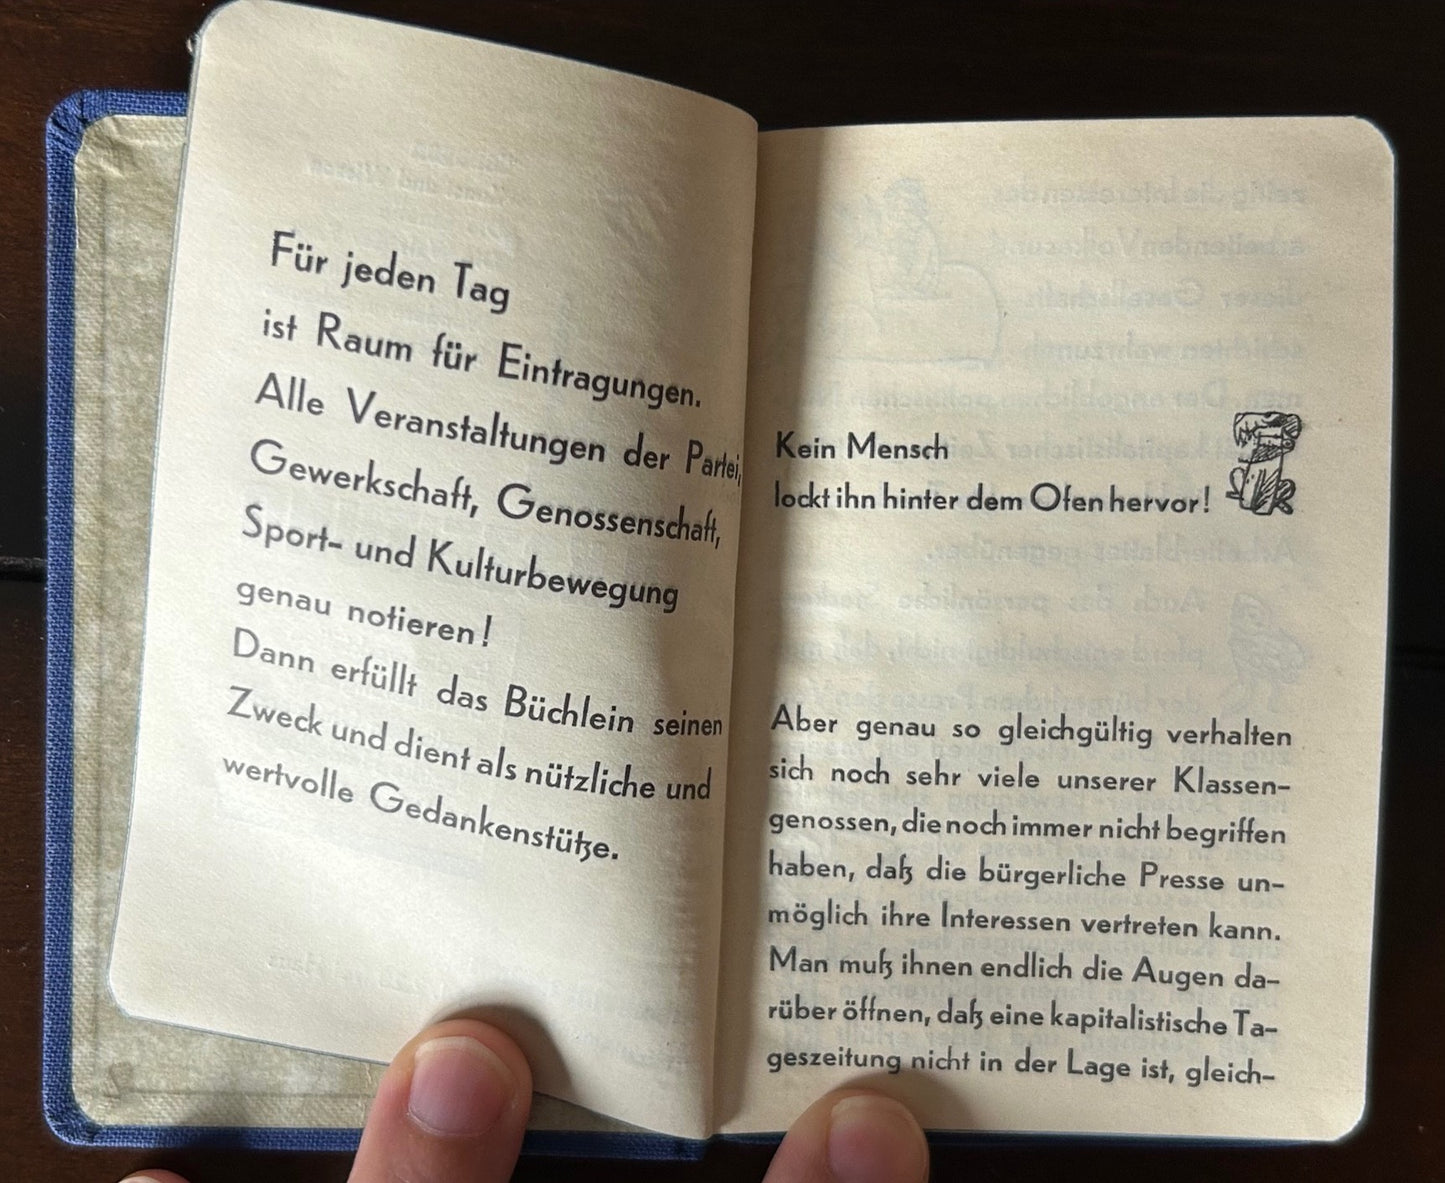 Für jeden Tag
ist Raum für Eintragungen.
Alle Veranstaltungen der Partei,
Gewerkschaft, Genossenschaft,
Sport- und Kulturbewegung
genau notieren!
Dann erfüllt das Büchlein seinen
Zweck und dient als nützliche und
wertvolle Gedankenstütze.
Kein Mensch
lockt ihn hinter dem Ofen hervor!
Aber genau so gleichgültig verhalten
sich noch sehr viele unserer Klassen-
genossen, die noch immer nicht begriffen
haben, daß die bürgerliche Presse un-
möglich ihre Interessen vertreten kann.
Man muß ihnen endlich die Augen da-
rüber öffnen, daß eine kapitalistische Ta-
geszeitung nicht in der Lage ist, gleich-